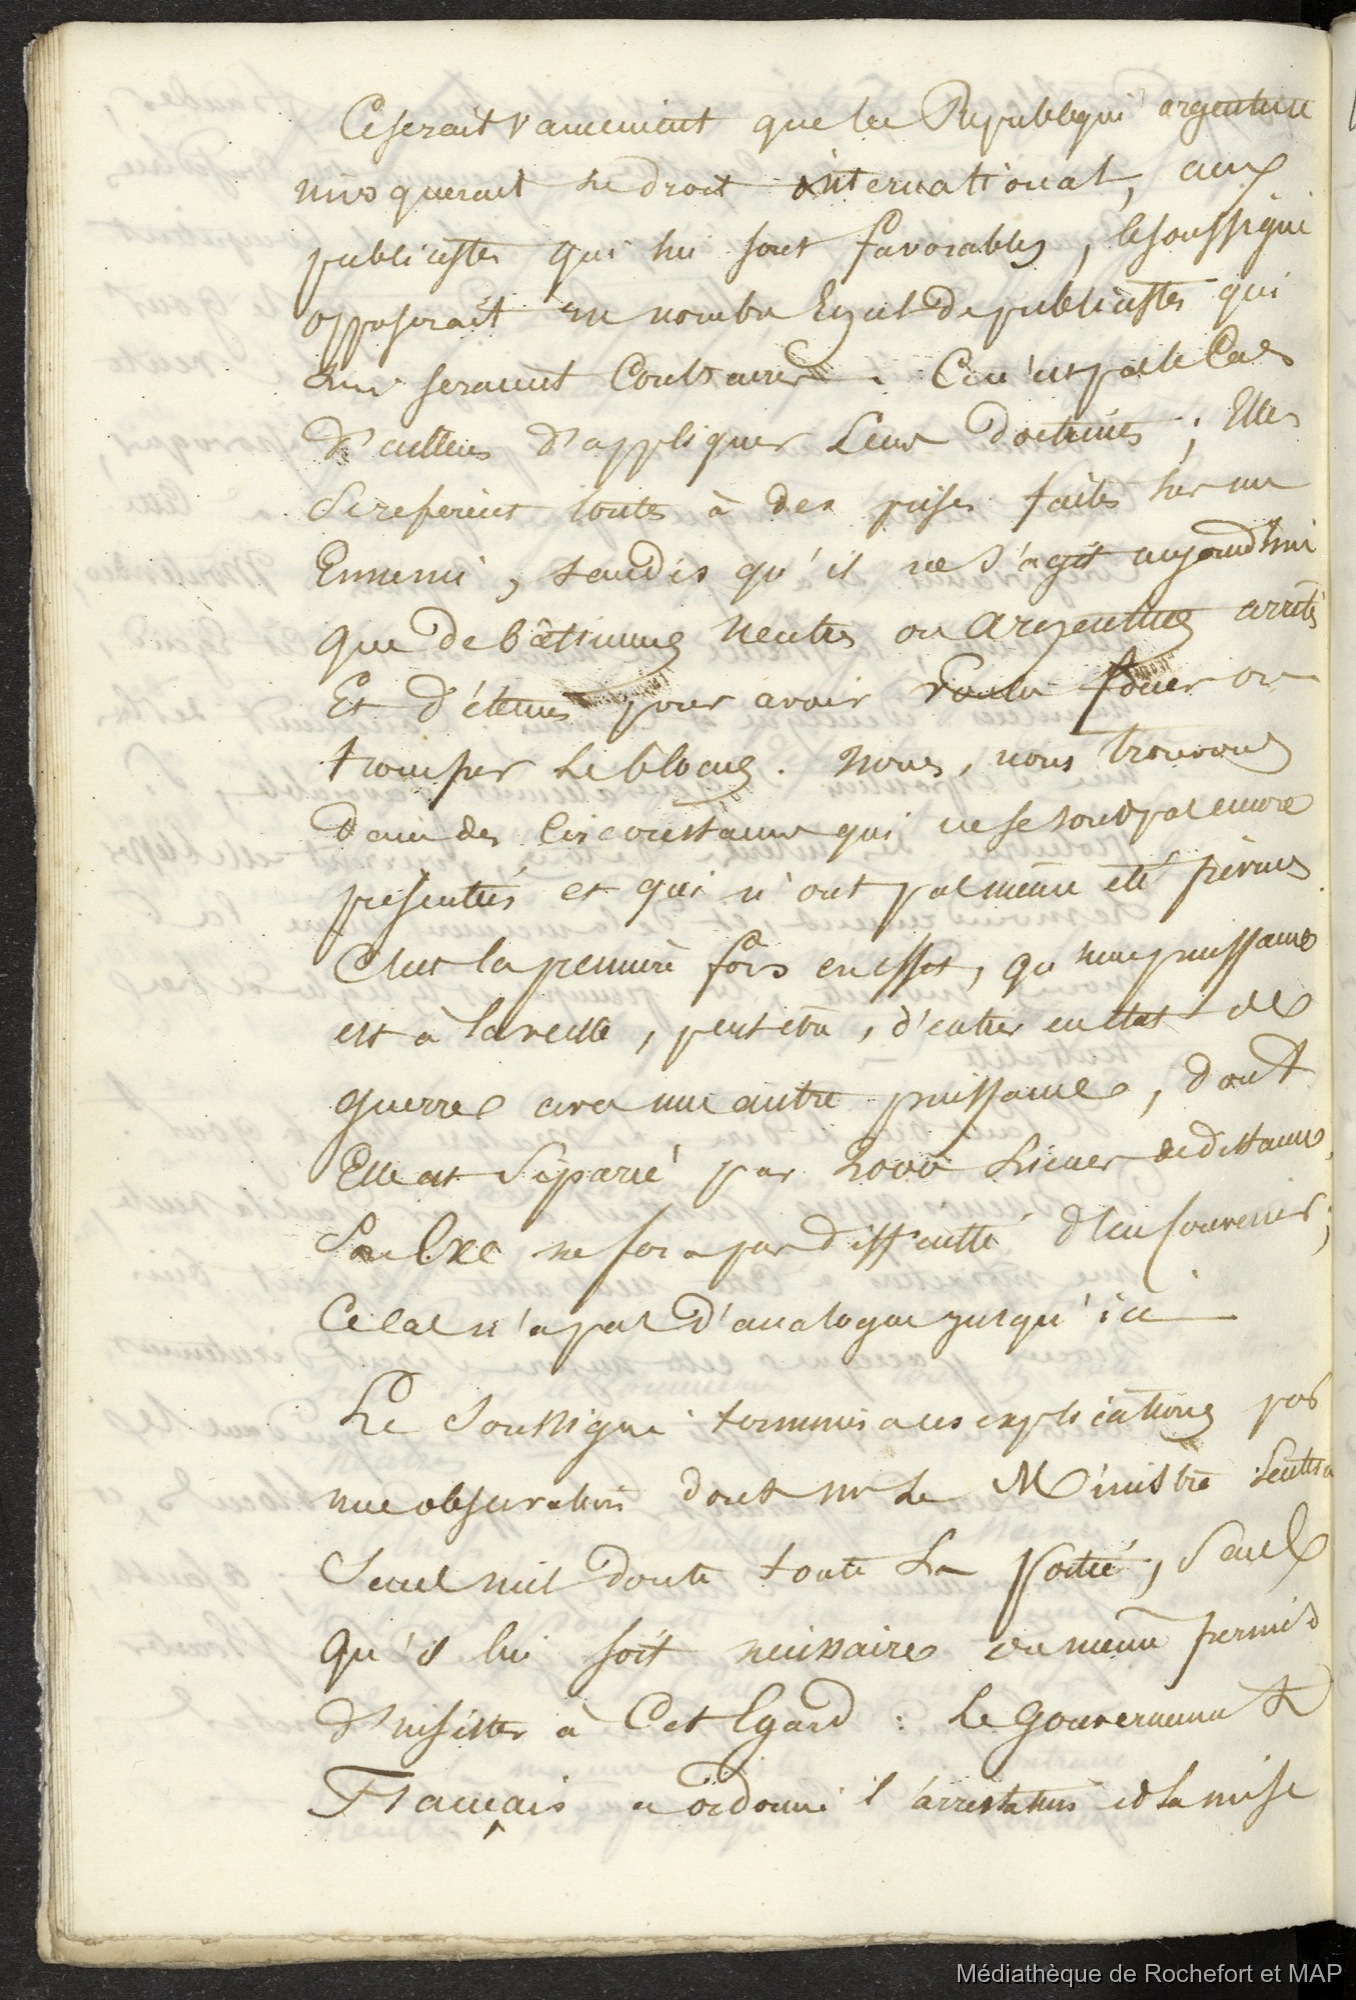 Ce serait vainement que la Republique argentine
invoquerait le droit international, aux
publicistes qui lui sont favorables, le soussigné
opposerait un nombre Egal de publicistes qui
lui seraient Contraires. Ce n'est pas le Cas
d'ailleurs d'appliquer Leurs doctrines ; Elles
se referent toutes à des prises faites sur un
Ennemi, tandis qu'il ne s'agit aujourd'hui
que de bâtimens Neutres ou argentins arrêtés
Et détenus pour avoir voulu forcer ou
tromper le blocus. Nous, nous trouvons
dans des Circonstances qui ne se sont pas encore
présentées et qui n'ont pas même été prévues.
C'est la première fois en effet, qu'une puissance
est à la veille, peut être, d'entrer en état de
guerre avec une autre puissance, dont
Elle est séparée par 2000 Lieues de distance,
Son Exe ne fera pas difficulté d'en convenir;
Ce cas n'a pas d'analogue jusqu'ici
Le Soussigné terminera ces explications par
une observation dont Mr Le Ministre sentira
sans nul doute toute La portée, sans
qu'il lui soit nécessaire ou même permis
d'insister à Cet Egard : Le Gouvernement
Français a ordonné l'arrestation et la mise
Médiathèque de Rochefort et MAP